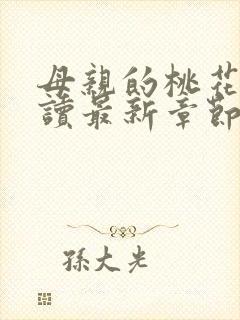 母親的桃花
讀最新章節
孫大光